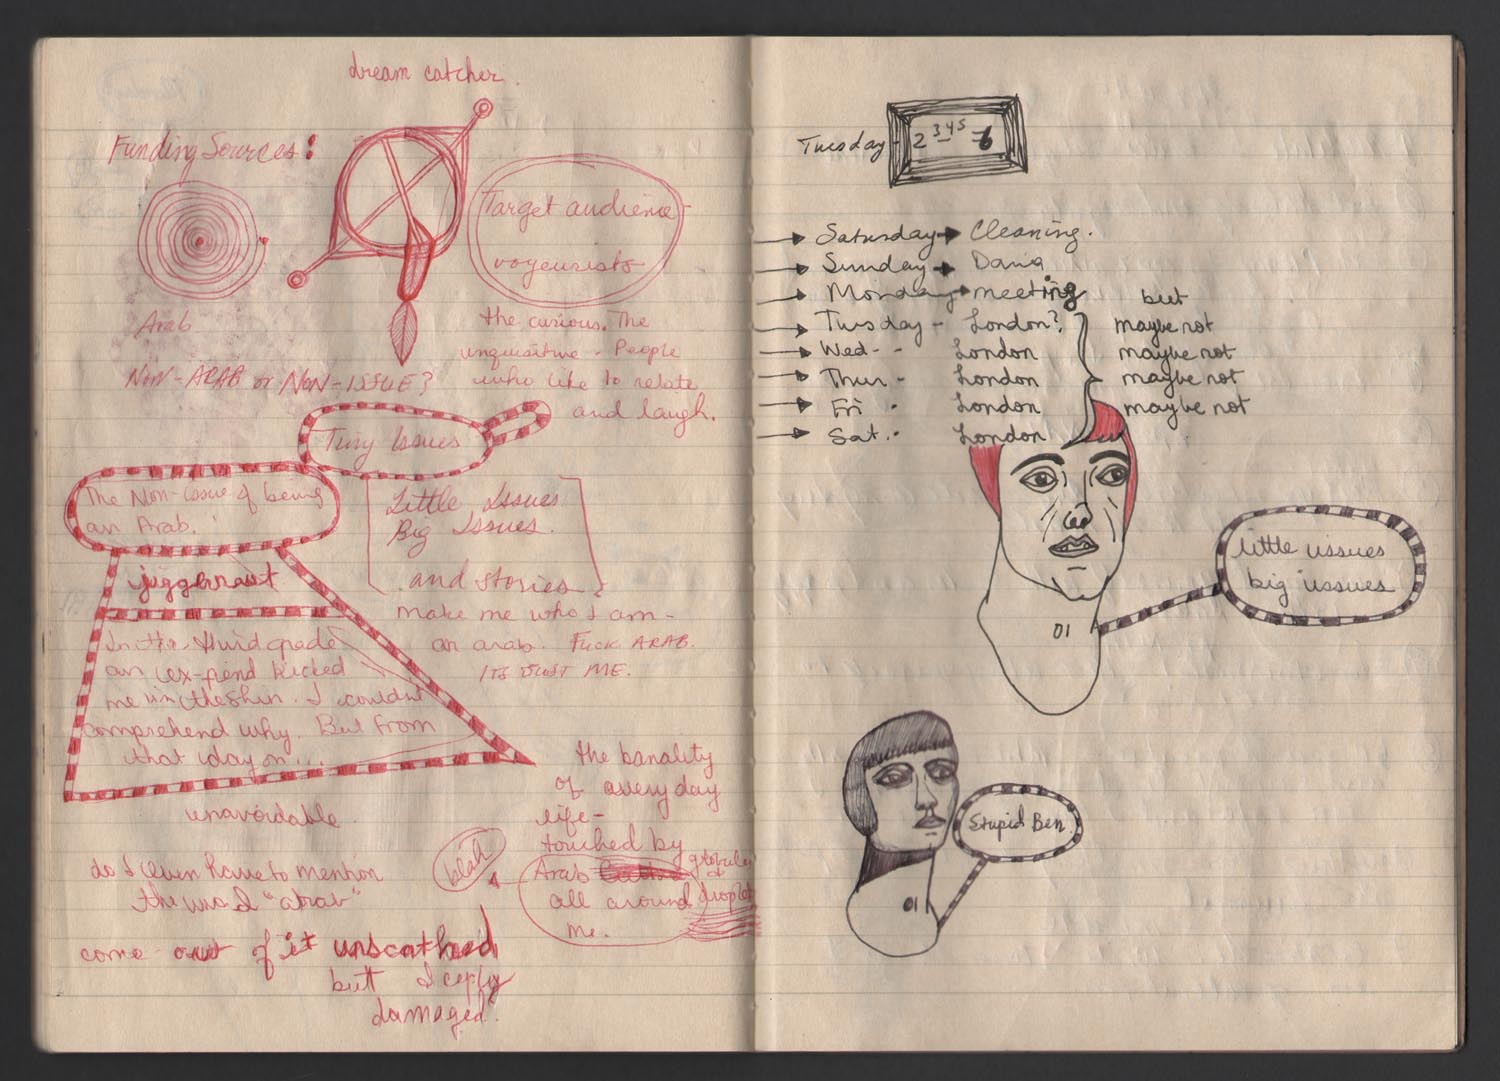 dream catcher.
Funding Sources:
Target audience
voyeurists
the curious. The
inquisitive. People
who like to relate
and laugh.
Arab
NON-ARAB or NON-ISSUE?
Tiny Issues
The Non-issue of being
an Arab.
Little Issues
Big Issues.
and stories
make me who I am -
an arab. FUCK ARAB.
ITS JUST ME.
juggernaut
In the third grade
an ex-fiend kicked
me in the shin. I couldn't
comprehend why. But from
that day on...
unavoidable
do I even have to mention
the word "arab"
come out of it unscathed
but deeply
damaged.
the banality
of every day
life -
touched by
blah
Arab globules
all around droplets
me.
Tuesday - 2 345 - 6
Saturday Cleaning.
Sunday Dania
Monday meeting but
Tuesday - London? maybe not
Wed - - London maybe not
Thur - London maybe not
Fri - London maybe not
Sat. - London
little issues
big issues
01
Stupid Ben.
01